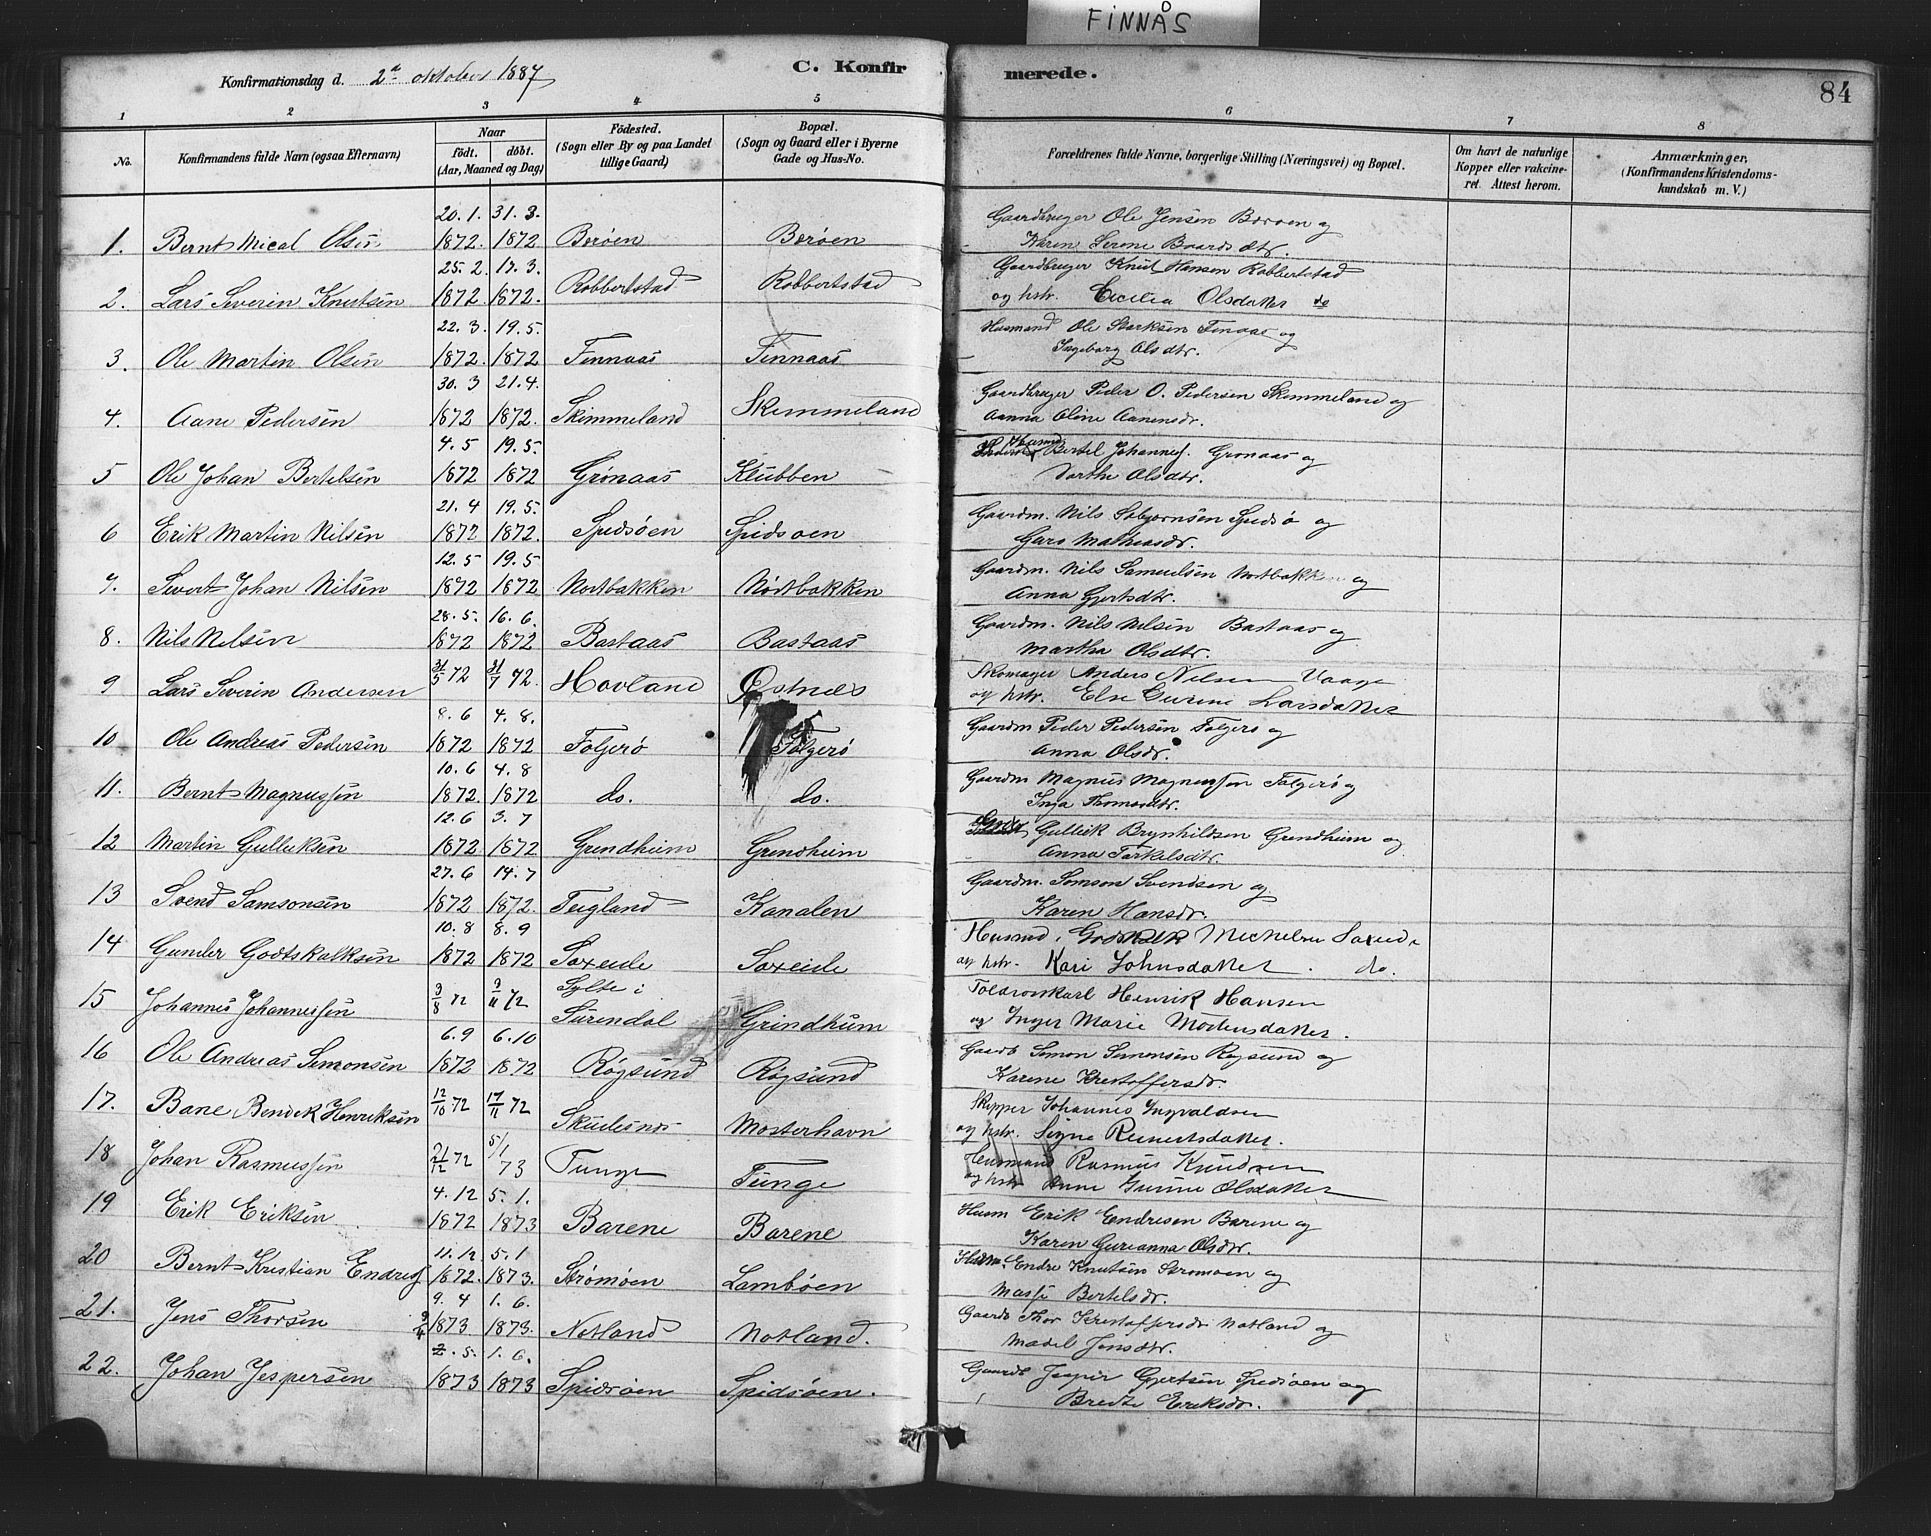 FINNÅS
Konfirmationsdag d. 2den oktober 1887
C. Konfirmerede.
84
1 2 3 4 5 6 7 8
No.
Konfirmandens fulde Navn (ogsaa Efternavn)
Naar
födt. döbt.
(Aar, Maaned og Dag)
Födested.
(Sogn eller By og paa Landet
tillige Gaard)
Bopæl.
(Sogn og Gaard eller i Byerne
Gade og Hus-No.
Forældrenes fulde Navne, borgerlige Stilling (Næringsvei) og Bopæl.
Om havt de naturlige
Kopper eller vakcine-
ret. Attest herom.
Anmærkninger,
(Konfirmandens Kristendoms-
kundskab m. V.)
20. 1. 31. 3. Gaardbruger Ole Jensen Beroen og
1. Bernt Mical Olsen 1872. 1872 Berøen Berøen Karen Serene Baards dtr.
25. 2. 17. 3. Gaardbruger Knut Hansen Robbertstad
2. Lars Severin Knutsen 1872 1872. Robbertstad Robbertstad og hstr. Cecilia Olsdatter do
22. 3. 19. 5. Husmand Ole Starksen Finaas og
3. Ole Martin Olsen 1872. 1872 Finnaas Finnaas Ingeborg Olsdtr.
30. 3 21. 4. Gaardbruger Peder O. Pedersen Skimmeland og
4. Aane Pedersen 1872 1872. Skimmeland Skimmeland Aanna Oline Aanensdr.
4. 5 19. 5. Husmd Bertel Johannes. Gronaas og
5 Ole Johan Bertelsen 1872 1872 Grønaas Klubben Dorthe Olsdtr.
21. 4 19. 5. Gaardm. Nils Asbjørnsen Spidsø og
6 Erik Martin Nilsen 1872 1872. Spidsøen Spidsoen Guro Mathiasdr.
12. 5 19. 5 Gaardm. Nils Samuelsen Nortbakken og
7. Sivert Johan Nilsen 1872 1872 Nortbakken Nórtbakken Anna Gjertsdtr.
28. 5. 16. 6. Gaardm. Nils Nilsen Bastaas og
8. Nils Nilsen 1872 1872 Bastaas Bastaas Martha Olsdtr.
9 Lars Severin Andersen 31/5 72 31/7 72. Hovland Østnes Skomager Anders Nilsen Vaage
og hstr. Else Gurine Larsdatter
8. 6 4. 8. Gaardm Peder Pedersen Folgerø og
10 Ole Andreas Pedersen 1872 1872 Folgerø Folgerø Anna Olsdr.
10. 6 4. 8 Gaardm Magnus Magnussen Folgerø og
11. Bernt Magnussen 1872. 1872 do. do. Inga Thomasdtr.
12. 6 3. 7 Gullik Brynhildsen Grendheim og
12 Martin Gulliksen 1872 1872 Grendheim Grendheim Anna Torkelsdtr.
27. 6 14. 7 Gaardm. Somson Svendsen og
13 Svend Samsonsen 1872 1872. Teigland Kanalen Karen Hansdr.
10. 8 8. 9 Husmd. Godskalk Michelsen
14 Gunder Godtskalksen 1872 1872 Soxeide Soxeide og hstr. Kari Johnsdatter. do.
15 Johannes Johannessen 3/8 72 3/11 72 Sylte i Toldroskarl Henrik Hansen
Surendal Grindhum og Inger Marie Mortensdatter.
6. 9 6. 10 Gaardb Simon Simonsen Røgsund og
16 Ole Andreas Simonsen 1872 1872 Røgsund Røgsund Karene Kristoffersdr.
17. Bane Bendik Henriksen 12/10 72 17/11 72 Skudesnes Mosterhavn Skipper Johannes Ingvaldsen
og hstr. Signe Reinertsdatter.
18 Johan Rasmussen 21/12 72 5/1 73 Tunge Tunge Husmand Rasmus Knudsen
og hstr Anne Gurine Olsdatter
4. 12 5. 1. Husm Erik Endresen Barene og
19 Erik Eriksen 1872 1873 Barene Barene Karen Gurianna Olsdtr.
11. 12 5. 1 Husm. Endre Knutsen Stromoen og
20 Bernt Kristian Endres 1872. 1873. Strømøen Lambøen Massi Bertelsdr.
9. 4 1. 6. Gaardb Thor Kristoffersdr Notland og
21. Jens Thorsen 3/4 1873 1873. Notland Notland. Madel Jensdtr.
2. 5. 1. 6. Gaardb Jesper Gjertsen Spidsøen og
22. Johan Jespersen 1873 1873 Spidsøen Spidsøen. Bredte Eriksdr.